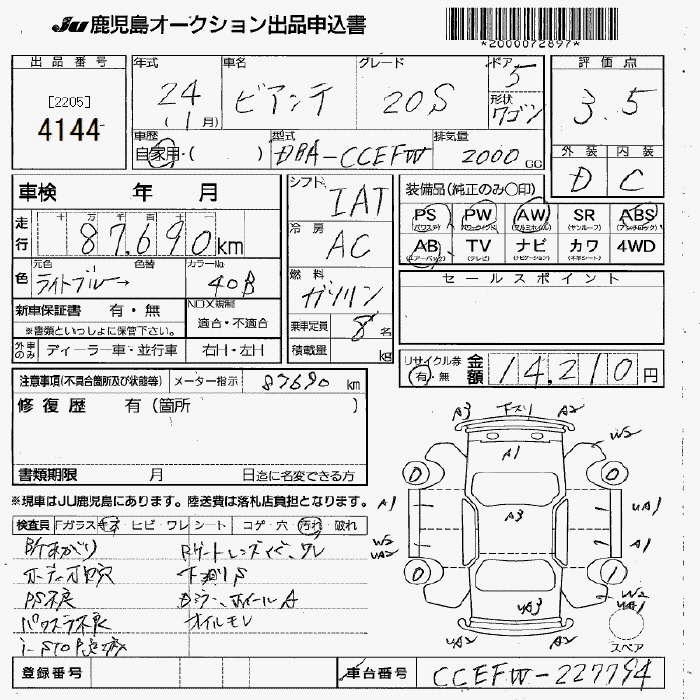 JU 鹿児島オークション出品申込書
*2000072897*
出品番号
[2205]
4144
年式
24
(1月)
車名
ビアンテ
グレード
20S
ドア
5
形状
ワゴン
評価点
3.5
外装 内装
D C
車歴
自家用・( )
型式
DBA-CCEFW
排気量
2000 CC
車検 年 月
走行
十 万 千 百 十 一
87,690 km
色
元色 色替
ライトブルー→
カラーNo
40B
新車保証書 有・無
※書類といっしょに保管下さい。
NOX規制
適合・不適合
外車のみ
ディーラー車・並行車
右H・左H
シフト
IAT
冷房
AC
燃料
ガソリン
乗車定員 8 名
積載量 kg
装備品(純正のみ○印)
PS PW AW SR ABS
(パワステ) (パワーウインド) (アルミホイル) (サンルーフ) (アンチロック)
AB TV ナビ カワ 4WD
(エアーバック) (テレビ) (ナビゲーション) (本革シート)
セールスポイント
リサイクル券
有・無
金額
14,210 円
注意事項(不具合箇所及び状態等)
メーター指示
87690 km
修復歴 有(箇所 )
書類期限 月 日迄に名変できる方
※現車はJU鹿児島にあります。陸送費は落札店負担となります。
検査員 Fガラス キズ・ヒビ・ワレ シート コゲ・穴・汚れ・破れ
PS不良
下廻りS
オイルモレ
A3 下スリ A2
W2
A1
0 0
A1 A3 UA1
W2
UA2
A1
0 1
W2
UA1
UA3
UA2 UA2
スペア
登録番号
車台番号
CCEFW-227794